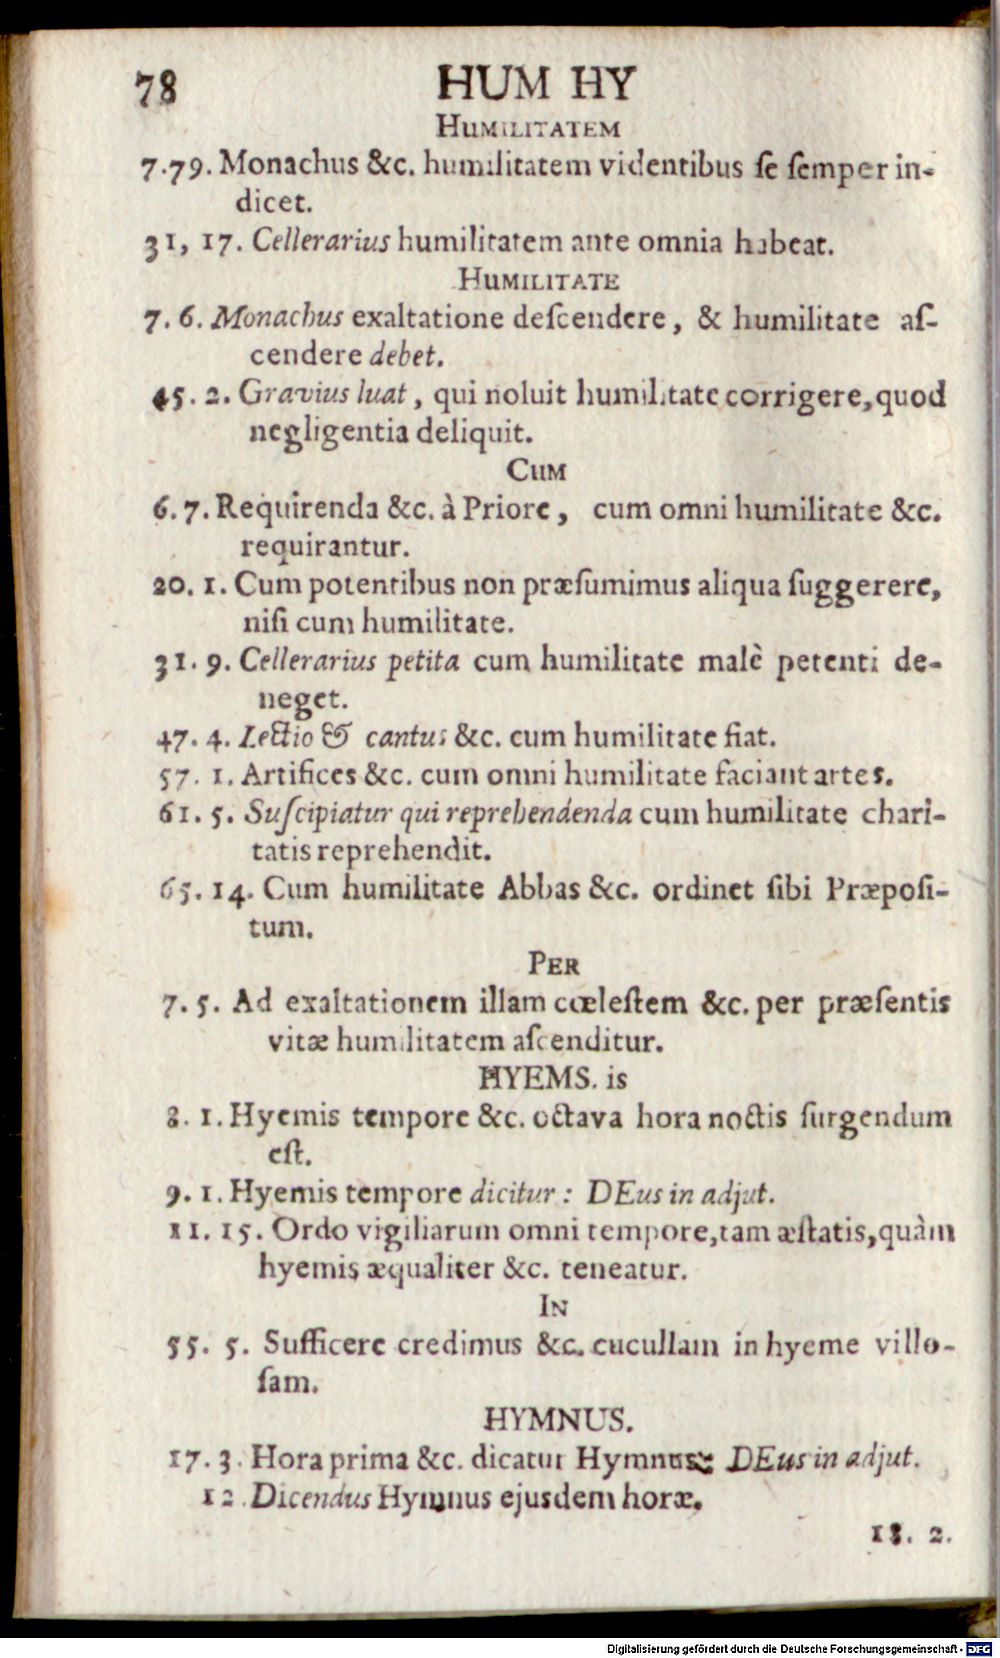 78
HUM HY
HUMILITATEM
7.79. Monachus &c. humilitatem videntibus ſe ſemper in-
dicet.
31, 17. Cellerarius humilitatem ante omnia habeat.
HUMILITATE
7. 6. Monachus exaltatione deſcendere, & humilitate aſ-
cendere debet.
45. 2. Gravius luat, qui noluit humilitate corrigere, quod
negligentia deliquit.
CUM
6. 7. Requirenda &c. à Priore, cum omni humilitate &c.
requirantur.
20. 1. Cum potentibus non præſumimus aliqua ſuggerere,
niſi cum humilitate.
31. 9. Cellerarius petita cum humilitate malè petenti de-
neget.
47. 4. Lectio & cantus &c. cum humilitate fiat.
57. 1. Artifices &c. cum omni humilitate faciant artes.
61. 5. Suſcipiatur qui reprehendenda cum humilitate chari-
tatis reprehendit.
65. 14. Cum humilitate Abbas &c. ordinet ſibi Præpoſi-
tum.
PER
7. 5. Ad exaltationem illam cœleſtem &c. per præſentis
vitæ humilitatem aſcenditur.
HYEMS. is
8. 1. Hyemis tempore &c. octava hora noctis ſurgendum
eſt.
9. 1. Hyemis tempore dicitur: DEus in adjut.
11. 15. Ordo vigiliarum omni tempore, tam æſtatis, quàm
hyemis æqualiter &c. teneatur.
IN
55. 5. Sufficere credimus &c. cucullam in hyeme villo-
ſam.
HYMNUS.
17. 3. Hora prima &c. dicatur Hymnus: DEus in adjut.
12. Dicendus Hymnus ejusdem horæ.
18. 2.
Digitalisierung gefördert durch die Deutsche Forschungsgemeinschaft - DFG